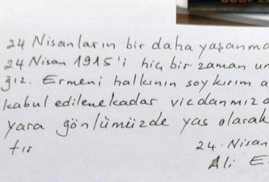 24 Nisanların bir daha yaşanma
24 Nisan 1915'i hiç bir zaman un
ğız. Ermeni halkının soykırım a
kabul edilene kadar vicdanımız
yara gönlümüzde yas olarak
tır
24. Nisan
Ali E